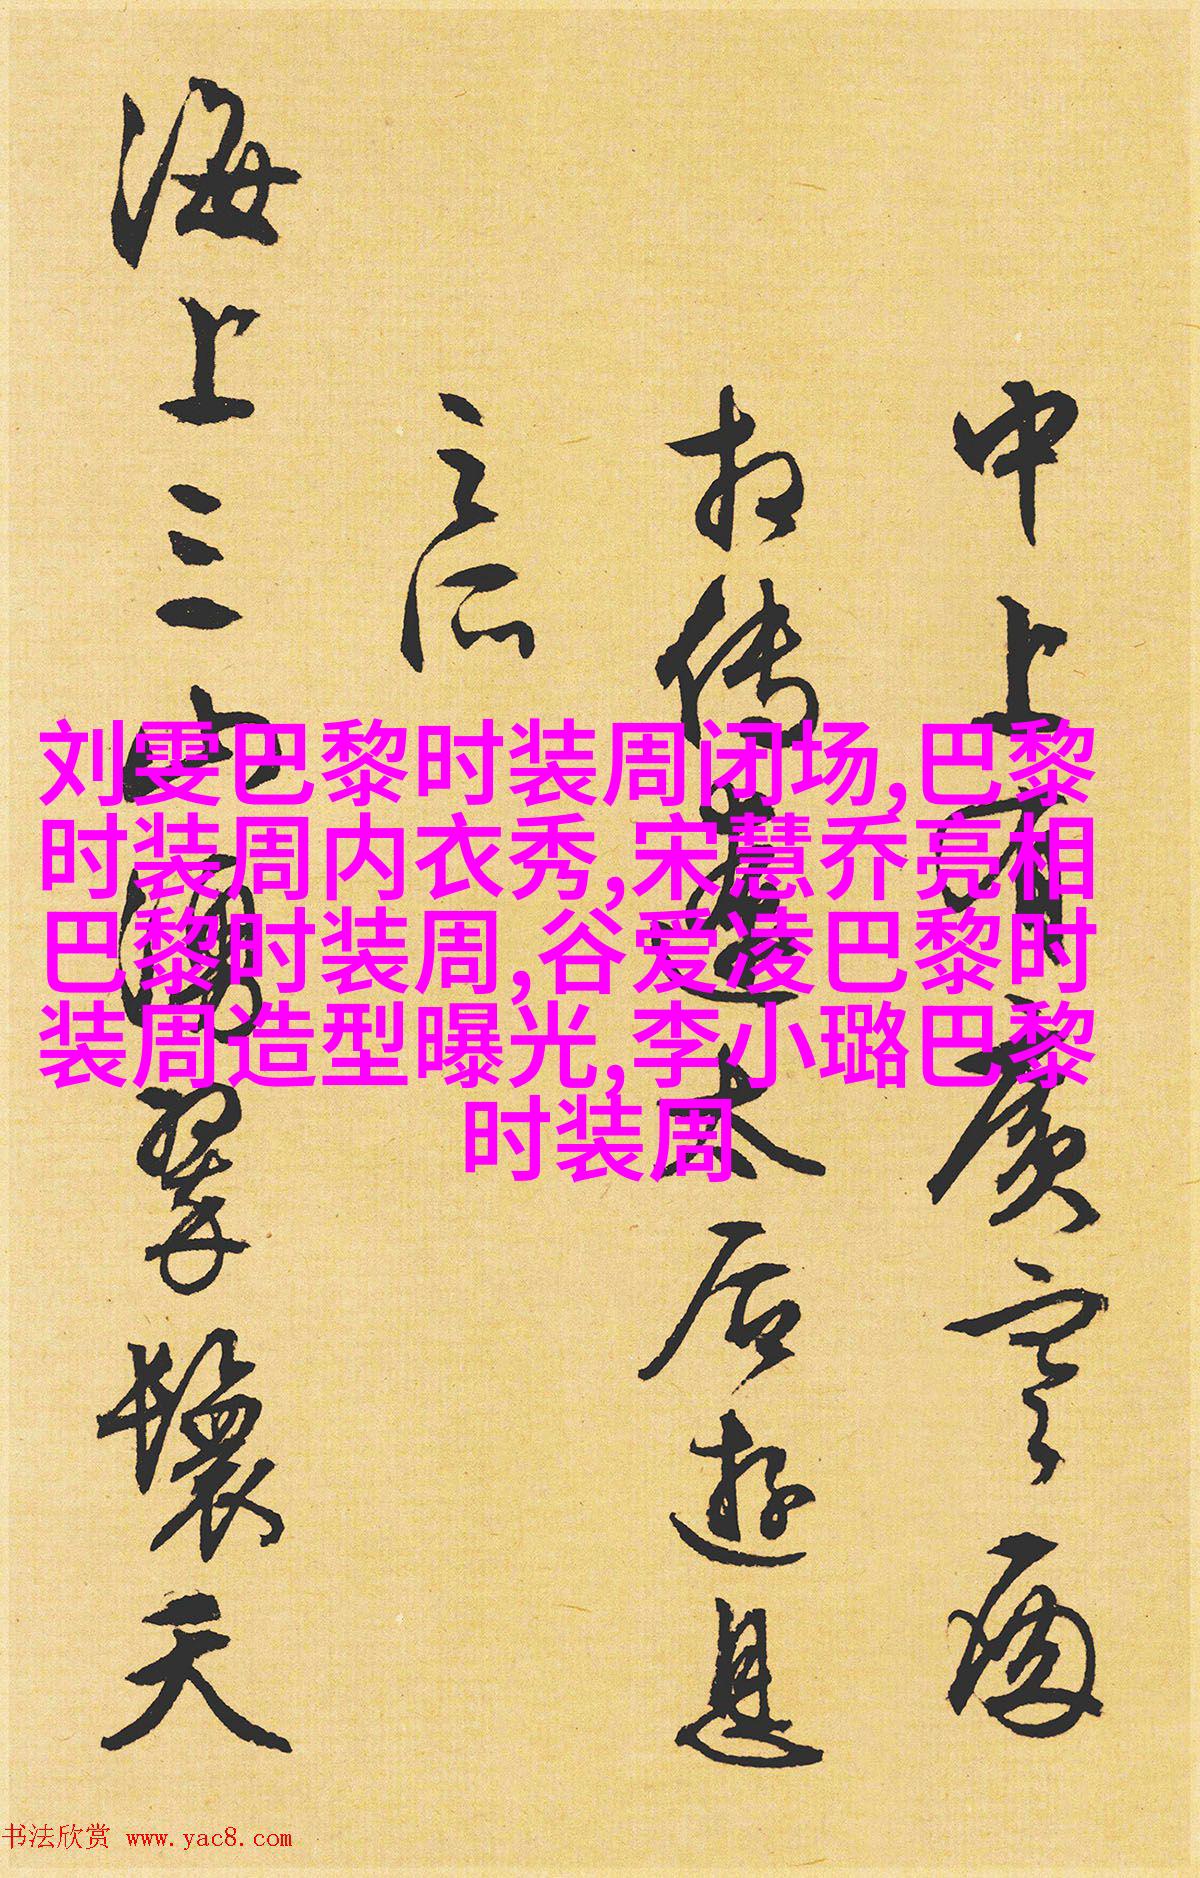 中上有广寒殿
相传辽太后游息
之所
海上三山涌翠鬟天
刘雯巴黎时装周闭场,巴黎
时装周内衣秀,宋慧乔亮相
巴黎时装周,谷爱凌巴黎时
装周造型曝光,李小璐巴黎
时装周
书法欣赏 www.yac8.com